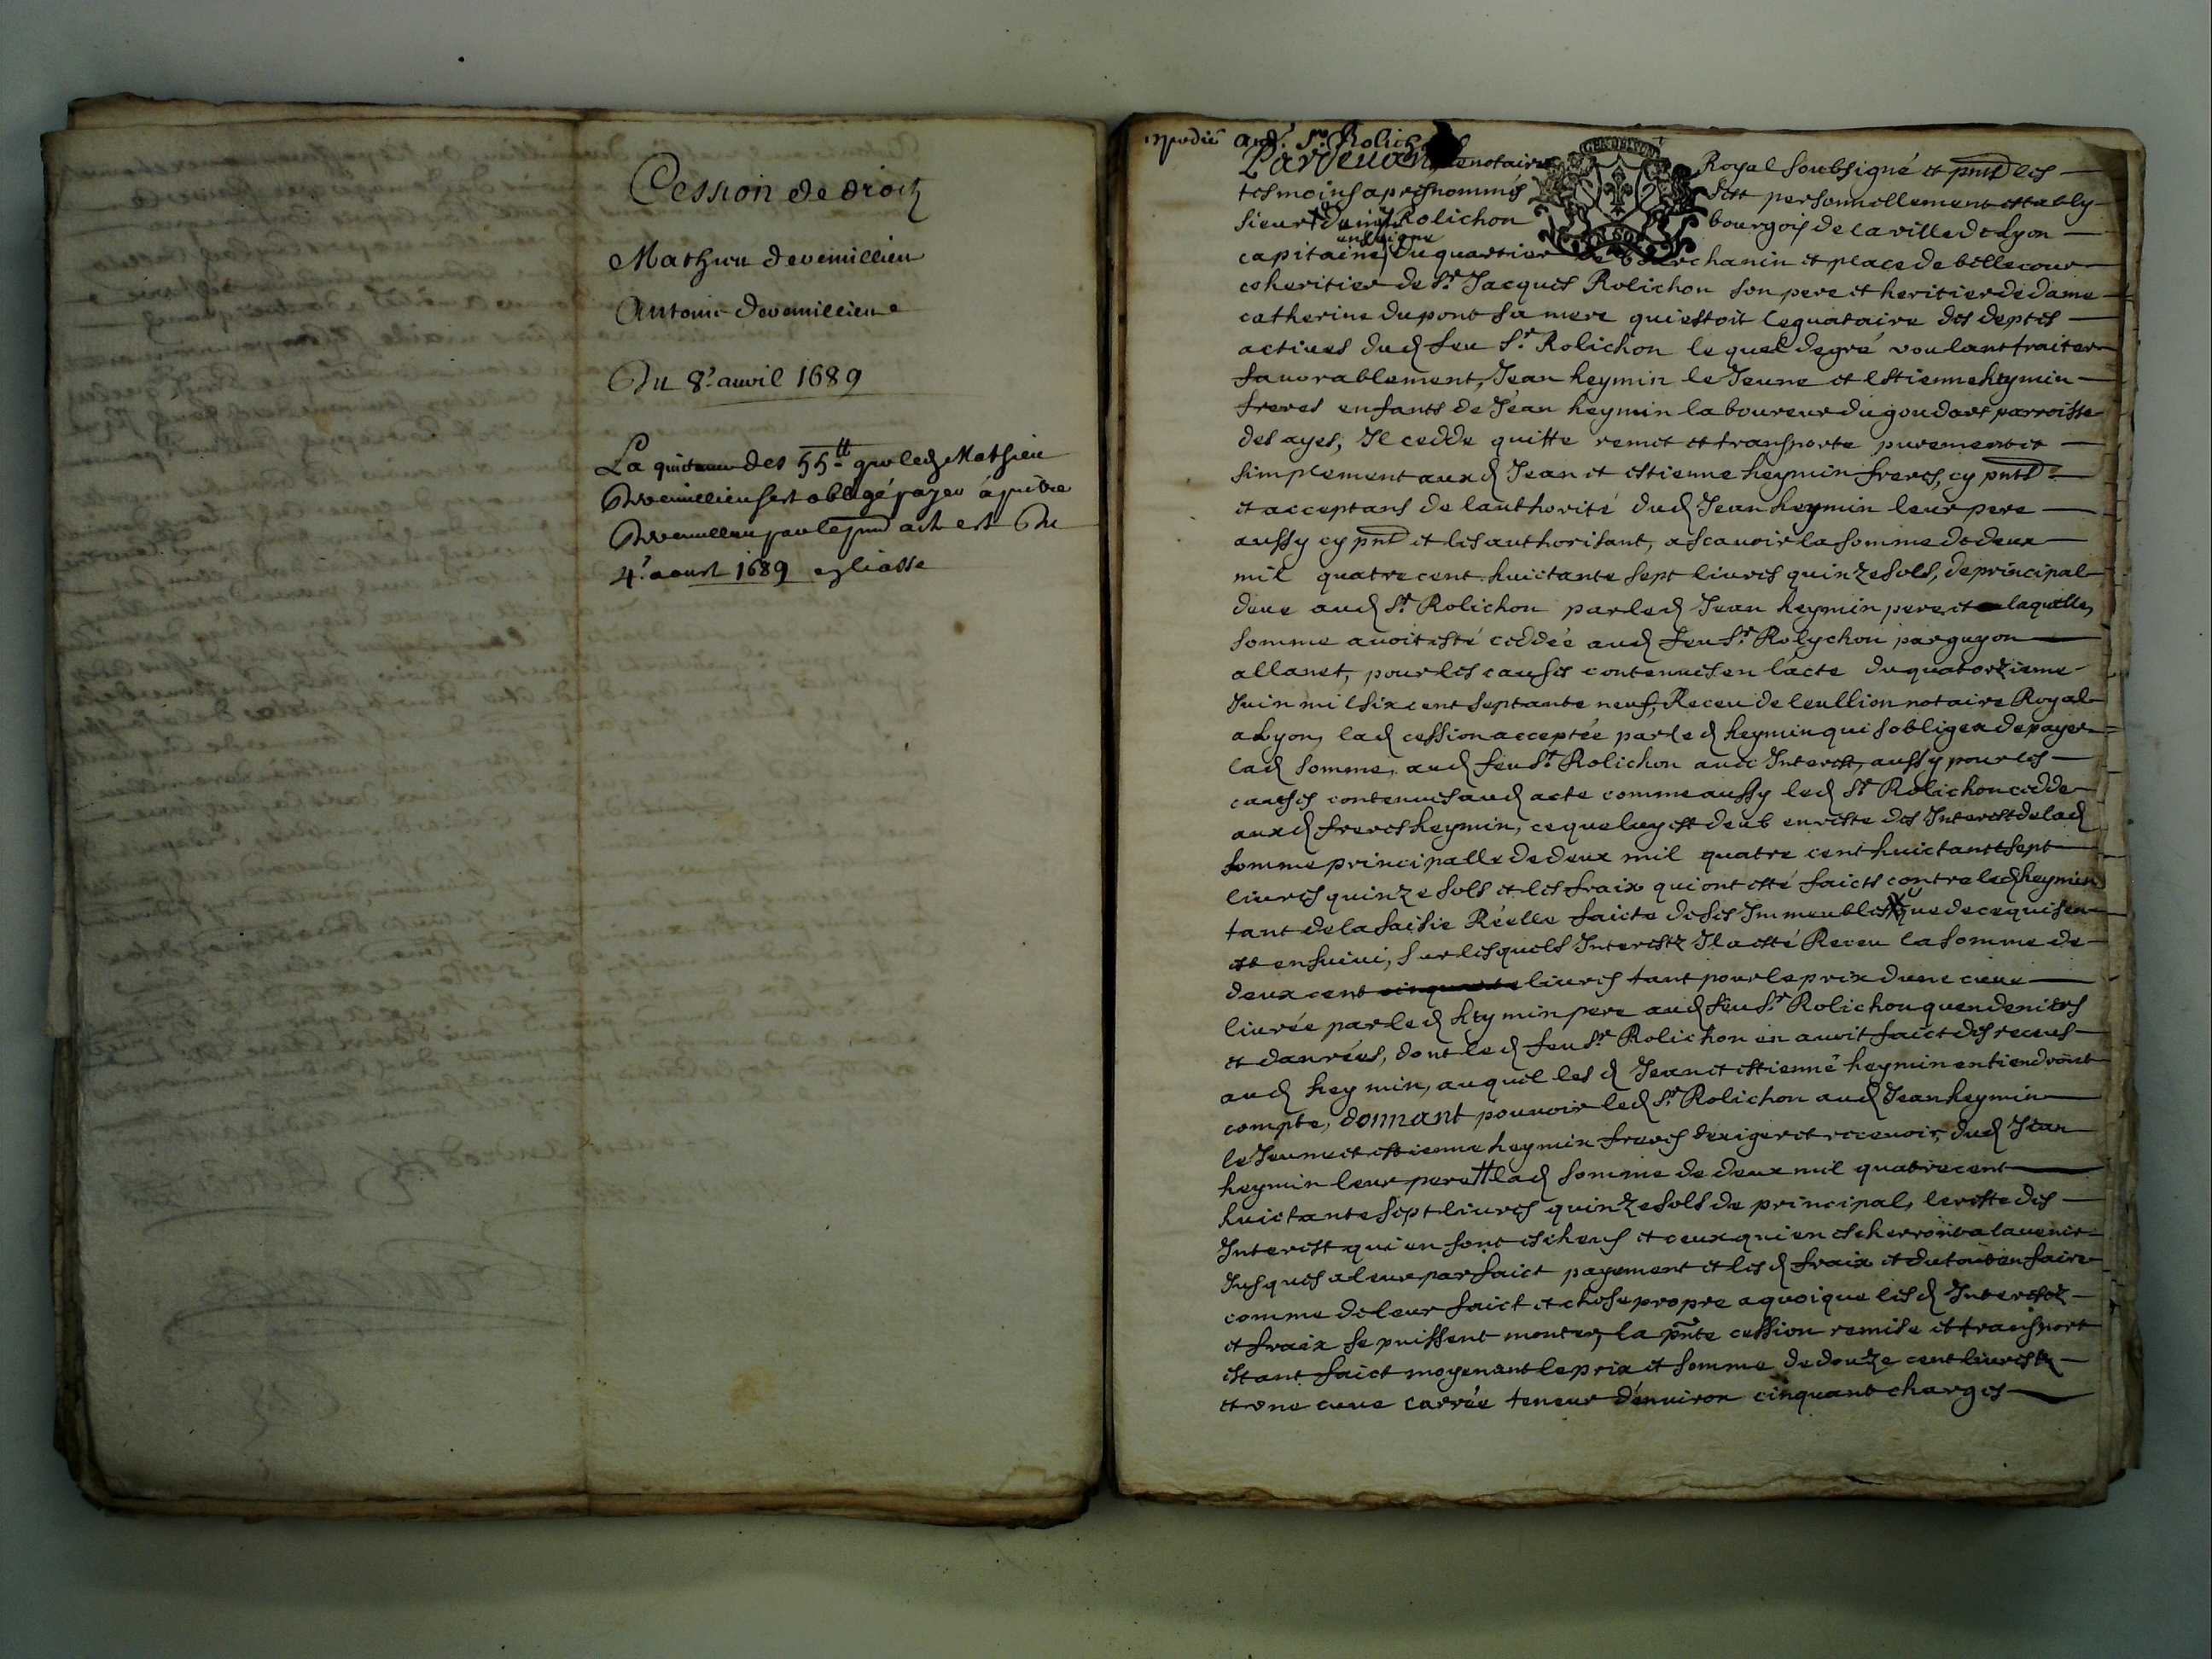 Cession de droitz
Mathieu devernillieu
Antoine devernillieu
Du 8e. auvil 1689
La quitance des 55tt. que ledz Mathieu
sest obligé payer a
par le pnt acte est Du
4e. aoust 1689
expedié aud. Sr. Rolich
Pardevant le notaire Royal soubsigné et pnts les
tesmoins apres nommés sest personnellement estably
sieur Rolichon bourgois de la ville de Lyon
enseigne
capitaine du quartier de bourchanin et place de bellecour
coheritier de Sr. Jacques Rolichon son pere et heritier de dame
catherine dupont sa mere qui estoit lequataire des deptes
actives dud feu Sr. Rolichon lequel de gré voulant traiter
favorablement, Jean heymin le Jeune et Estienne heymin
freres enfants de Jean heymin laboureur du goudart parroisse
des ayes, Il cedde quitte remet et transporte purement et
simplement auxd Jean et estienne heymin freres, cy pnts
et acceptans de lauthorité dud Jean heymin leur pere
aussy cy pnt et les authorisant, a scavoir la somme de deux
mil quatre cent huictante sept livres quinze sols, de principal
deue aud Sr. Rolichon par led Jean heymin pere, et laquelle
somme avoit esté ceddée aud feu Sr. Rolychon par guyon
allanet, pour les causes contenues en lacte du quatorzieme
Juin mil six cent septante neuf, Receu de leullion notaire Royal
a Lyon, lad cession acceptée par led heymin qui sobligea de payer
lad somme, aud feu Sr. Rolichon avec Interest, aussy pour les
causes contenues aud acte comme aussy led Sr. Rolichon cedde
auxd freres heymin, ce que luy est deub en reste des Interest de lad
somme principalle de deux mil quatre cent huictante sept
livres quinze sols et les fraix qui ont esté faicts contre led heymin
tant de la saisie Réelle faicte de ses Immeubles que de ce qui sen
est ensuivi, sur lesquels Interestz Il a esté Receu la somme de
deux cent cinquante livres tant pour le prix dune cuve
livrée par led heymin pere aud feu Sr. Rolichon quen deniers
et danrées, dont led feu Sr. Rolichon en avoit faict des receus
aud heymin, auquel les d Jean et estienne heymin en tiendront
compte, donnant pouvoir led Sr. Rolichon aud Jean heymin
le Jeune et estienne heymin freres dexiger et recevoir, dud Jean
heymin leur pere # lad somme de deux mil quatre cent
huictante sept livres quinze sols de principal, le reste des
Interest qui en sont escheus et ceux qui en escherront a lavenir
Jusques a leur parfaict payement et les d fraix et du tout en faire
comme de leur faict et chose propre a quoi que les d Interestz
et fraix se puissent monter, la pnte cession remise et transport
estant faict moyenant le prix et somme de douze cent livres
et une cuve carrée teneur denviron cinquant charges